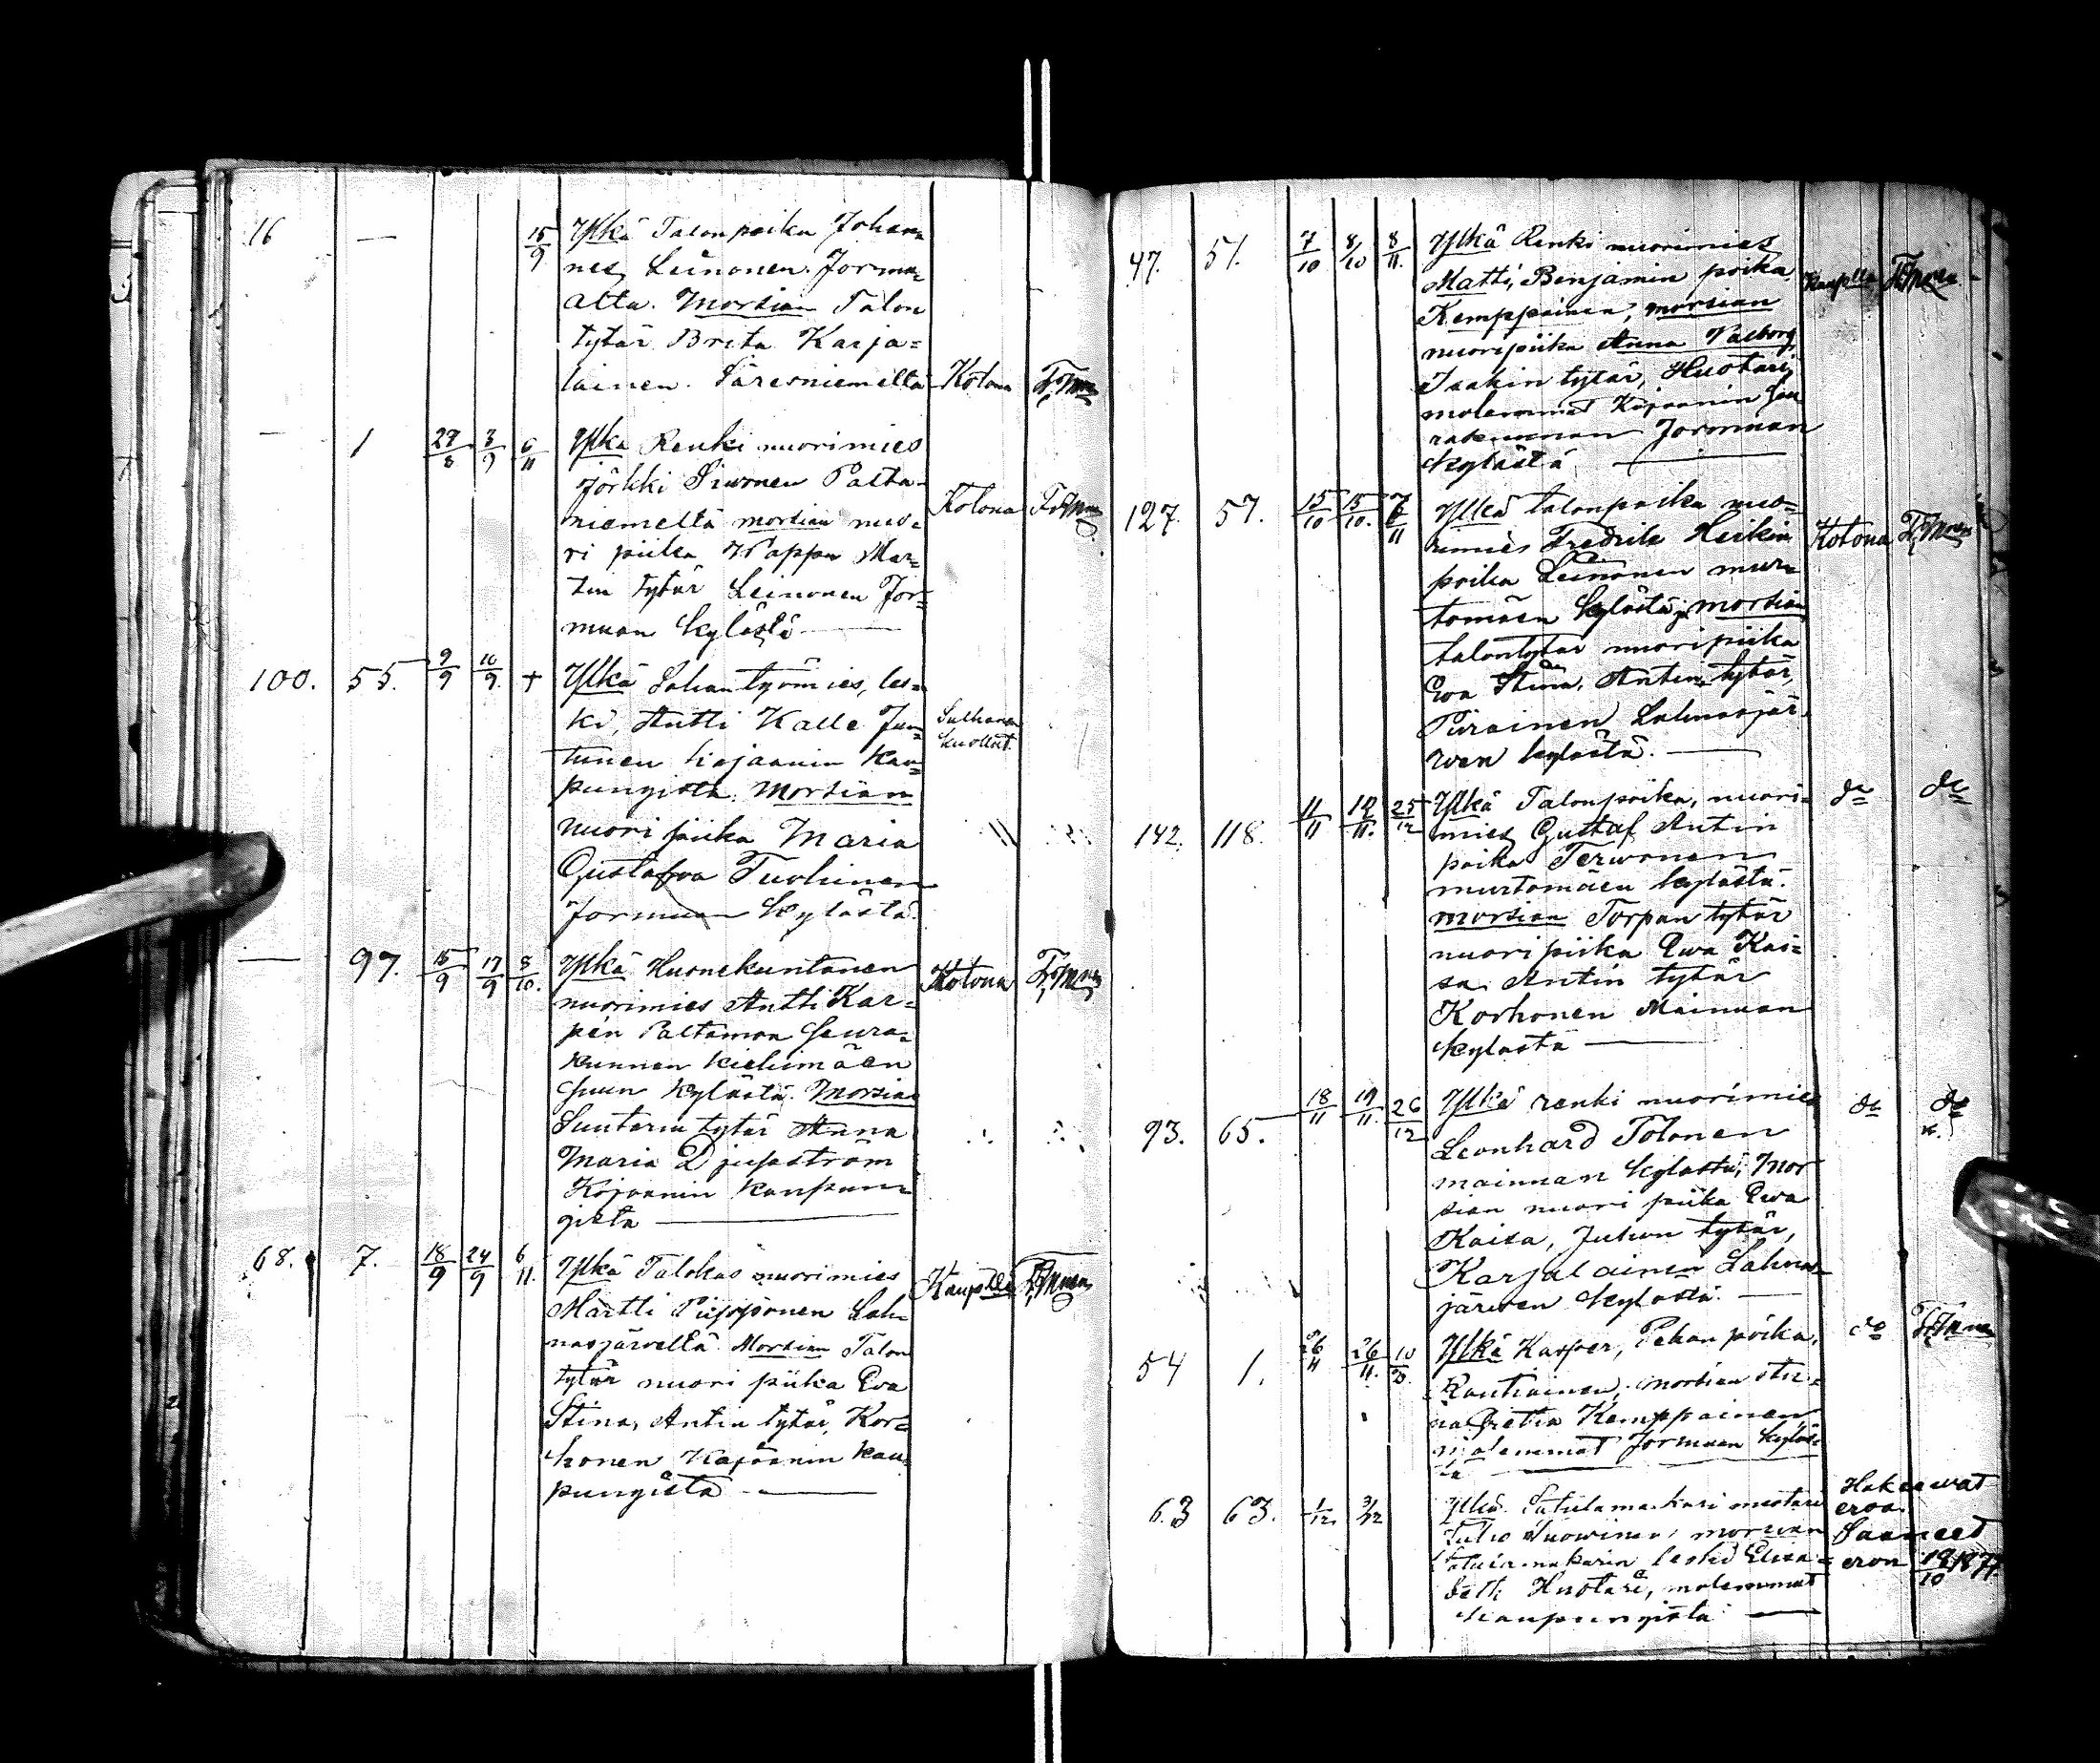 16 — 15/9 Ylkä Talonpoika Johan-
nes Leinonen Jormu-
alta. Morsian Talon
tytär Brita Karja-
lainen. Säresniemeltä Kotona
— 1 27/8 3/9 6/11 Ylkä Renki nuorimies
Jörkki Siwonen Palta-
niemeltä morsian nuo- Kotona
ri piika Wappu Mar-
tin tytär Leinonen Jor-
muan kylästä —
100. 55. 9/9 10/9. + Ylkä Sahan työmies, les-
ki, Antti Kalle Jun- Sulhanen
tunen Kajaanin kau- kuollut.
pungista. Morsian
nuori piika Maria
Gustafva Tuohinen
Jormuan kylästä.
— 97. 15/9 17/9 8/10. Ylkä Huonekuntanen Kotona
nuorimies Antti Kar-
pén Paltamon seura-
kunnan Kiehimäen
suun kylästä. Morsian
Suutarin tytär Anna
Maria
Kajaanin kaupun-
gista —
68. 7. 18/9 24/9 6/11. Ylkä Talokas nuorimies Kaup:lla
Martti Piipponen Lah-
nasjärveltä. Morsian Talon
tytär nuori piika Eva
Stina, Antin tytär, Kor-
honen Kajaanin kau-
pungista —
47. 51. 7/10 8/10 8/11. Ylkä Renki nuorimies
Matti, Benjamin poika Kaup:lla
Kemppainen, morsian
nuoripiika Anna Valborg,
Isakin tytär, Huotari,
molemmat Kajaanin seu
rakunnan Jormuan
kylästä —
127. 57. 15/10 15/10. Ylkä talonpoika nuo-
rimies Fredrik Heikin Kotona
poika Leinonen mur-
tomäen kylästä, morsian
talontytär nuoripiika
Eva Stina, Antin tytär,
Piirainen Lahnasjär-
wen kylästä. —
142. 118. 11/11 12/11. 25/12 Ylkä Talonpoika, nuori- do do
mies Gustaf Antin
poika Terwonen
murtomäen kylästä.
morsian Torpan tytär
nuoripiika Ewa Kai-
sa Antin tytär
Korhonen Mainuan
kylästä —
93. 65. 18/11 19/11. 26/12 Ylkä renki nuorimies do do
Leonhard Tolonen
mainuan kylästä, Mor
sian nuori piika Ewa
Kaisa, Juhon tytär,
Karjalainen Lahnas-
järwen kylästä. —
54 1. 26/11 26/11. Ylkä Kasper, Pekan poika, do
Rautiainen, morsian Sti-
na Greta Kemppainen
molemmat Jormuan kyläs-
tä —
63 63. 1/12. 3/12 Ylkä Satulamakari mestari Hakeewat
Juho Wuorinen, morsian eroa. Saaneet
Satulamakarin leski Elisa- eron 19/10 1877.
beth Huotari, molemmat
kaupungista —